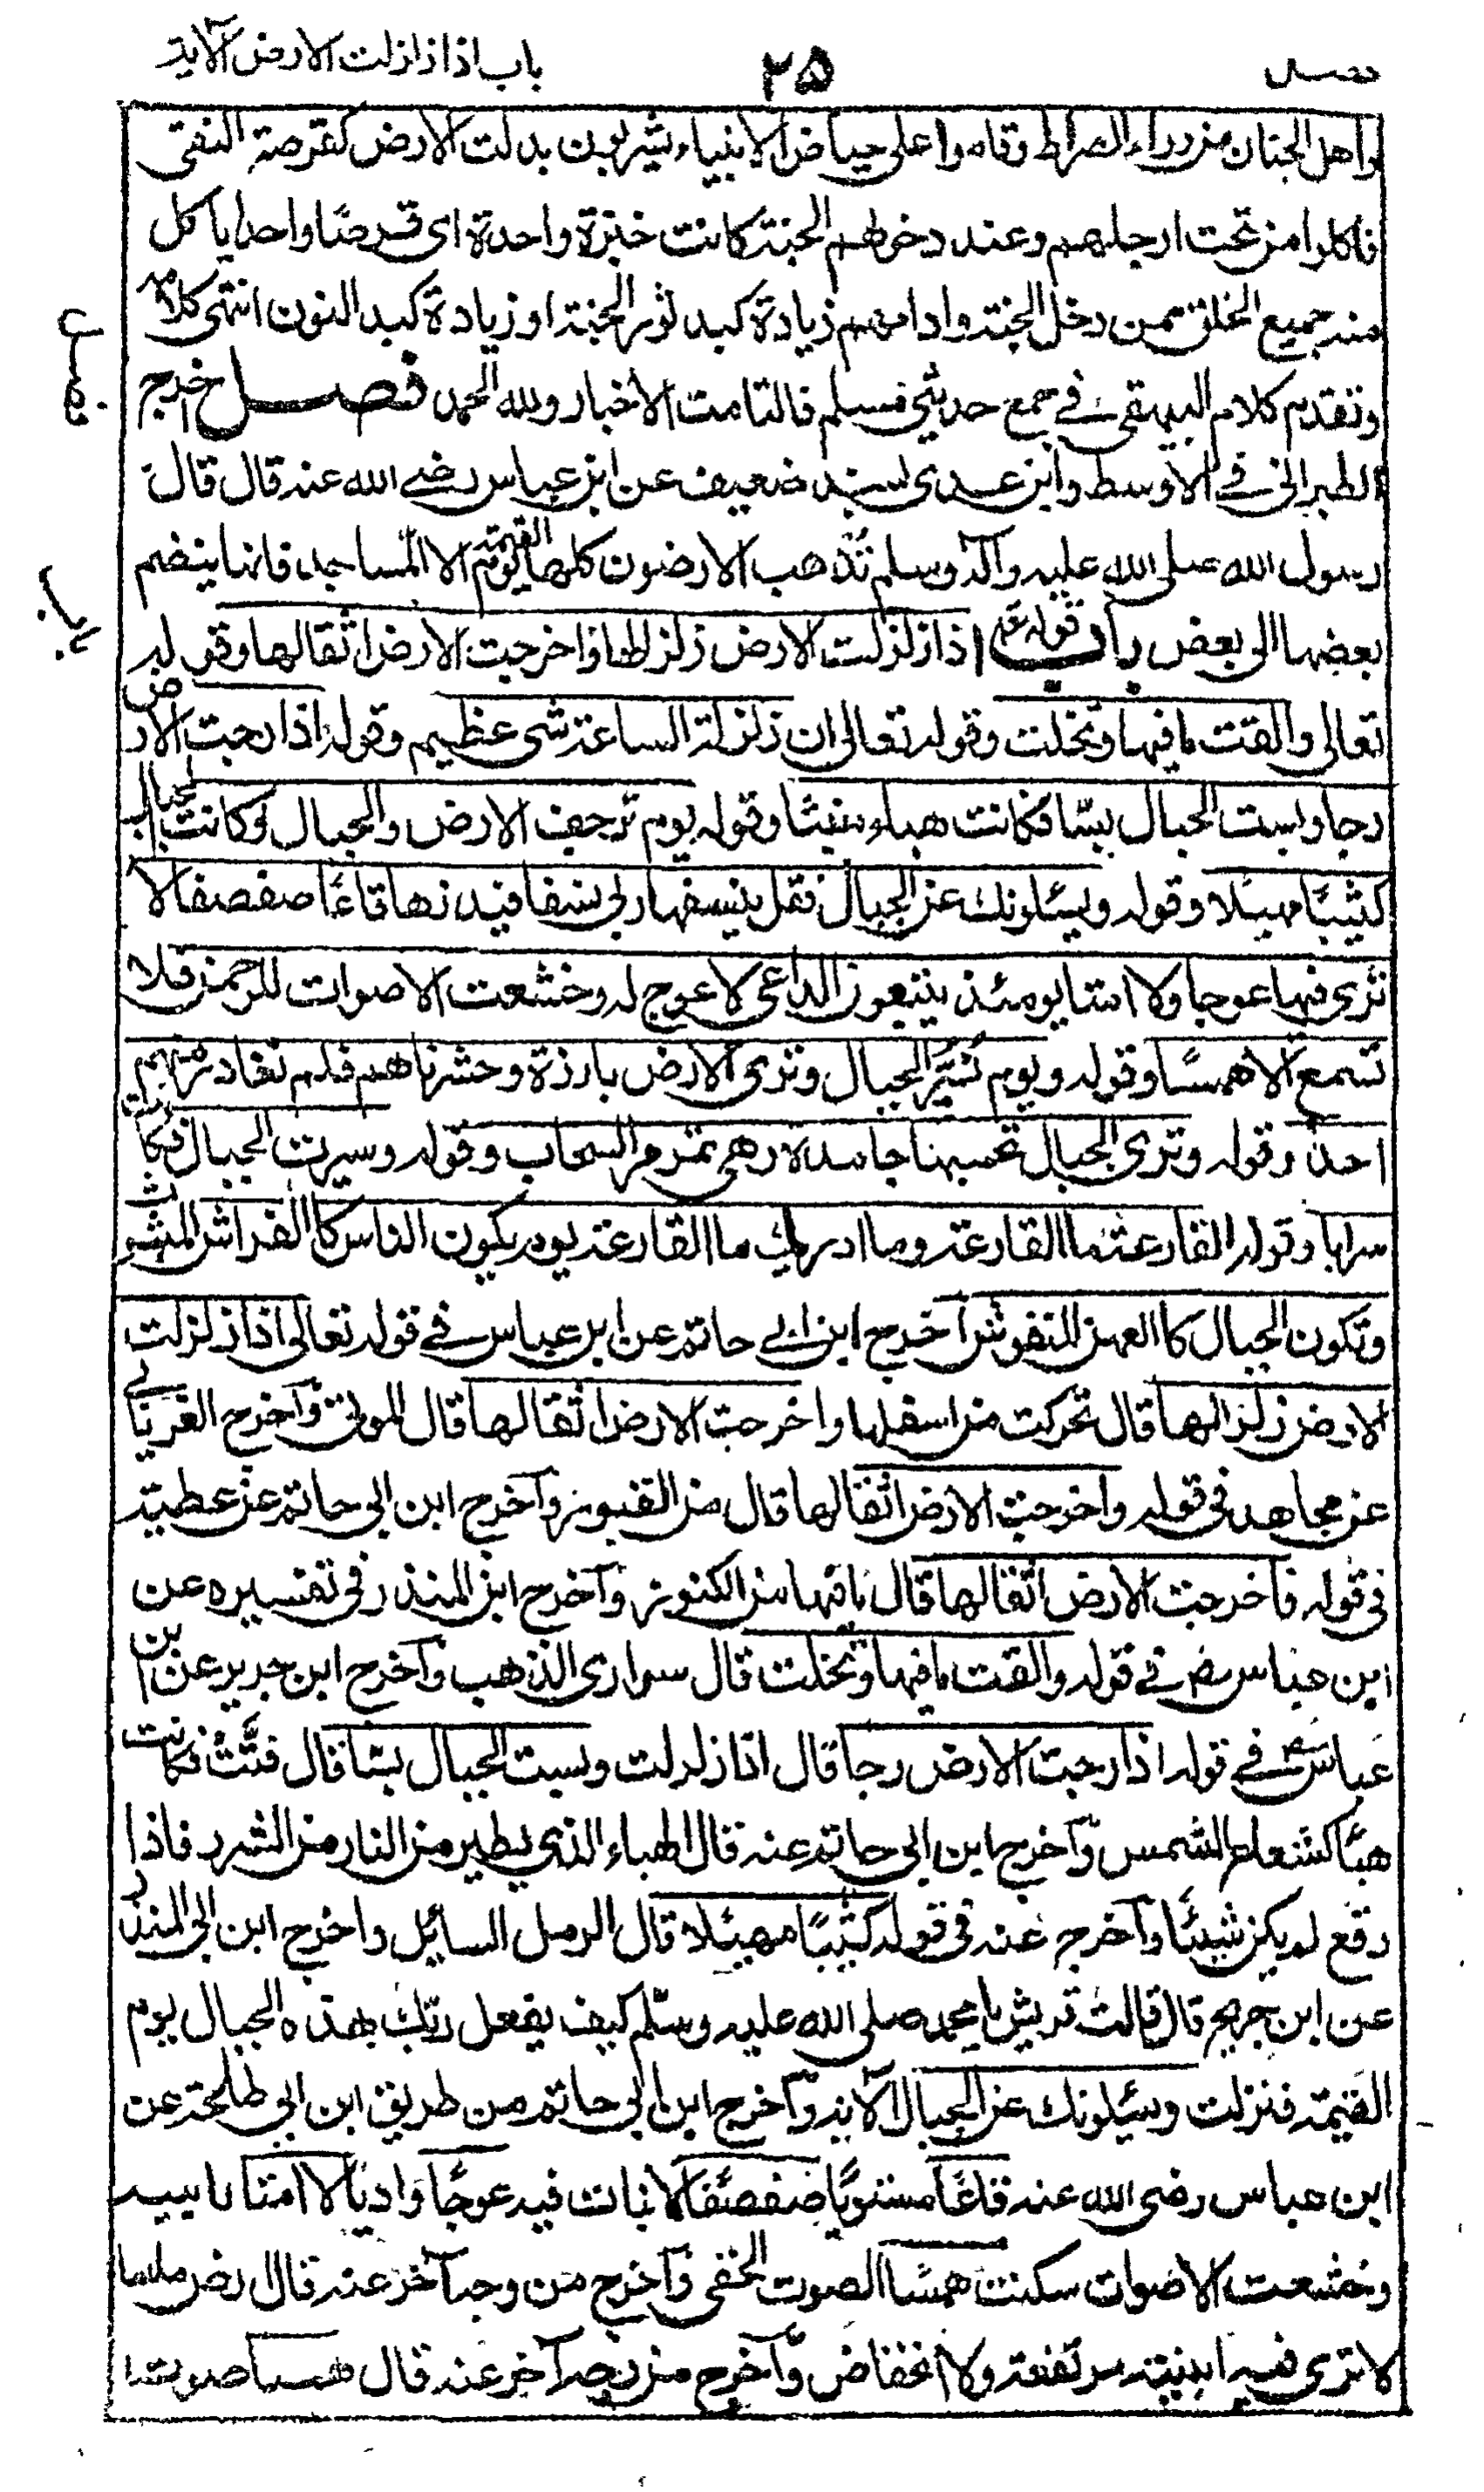 فصل
٢٥
باب اذا زلزلت الارض الآية
واهل الجنان من وراء الصراط وقاموا على حياض الانبياء يشربون بدلت الارض كقرصة النقى
فاكلوا من تحت ارجلهم وعند دخولهم الجنة كانت خبزة واحدة اى قرصًا واحدا ياكل
منه جميع الخلق ممن دخل الجنة وادامهم زيادة كبد ثور الجنة او زيادة كبد النون انتهى كلامه
وتقدم كلام البيهقى فى جمع حديثى مسلم فالتامت الاخبار ولله الحمد فصل اخرج
الطبرانى فى الاوسط وابن عدى بسند ضعيف عن ابن عباس رضى الله عنه قال قال
رسول الله صلى الله عليه وآله وسلم تذهب الارضون كلها يوم القيمة الا المساجد فانها ينضم
بعضها الى بعض باب قوله تعالى اذا زلزلت الارض زلزالها واخرجت الارض اثقالها وقوله
تعالى والقت ما فيها وتخلت وقوله تعالى ان زلزلة الساعة شى عظيم وقوله اذا رجت الارض
رجا وبست الجبال بسّا فكانت هباء منبثا وقوله يوم ترجف الارض والجبال وكانت الجبال
كثيبًا مهيلا وقوله ويسئلونك عن الجبال فقل ينسفها ربى نسفا فيذرها قاعًا صفصفا لا
ترى فيها عوجا ولا امتا يومئذ يتبعون الداعى لا عوج له وخشعت الاصوات للرحمن فلا
تسمع الا همسًا وقوله ويوم نُسَيّر الجبال وترى الارض بارزة وحشرناهم فلم نغادر منهم
احدًا وقوله وترى الجبال تحسبها جامدة وهى تمر مر السحاب وقوله وسيرت الجبال فكانت
سرابا وقوله القارعة ما القارعة وما ادريك ما القارعة يوم يكون الناس كالفراش المبثوث
وتكون الجبال كالعهن المنفوش اخرج ابن ابى حاتم عن ابن عباس فى قوله تعالى اذا زلزلت
الارض زلزالها قال تحركت من اسفلها واخرجت الارض اثقالها قال الموتى وآخرج الفريابى
عن مجاهد فى قوله واخرجت الارض اثقالها قال من القبور وآخرج ابن ابى حاتم عن عطية
فى قوله فاخرجت الارض اثقالها قال ما فيها من الكنوز وآخرج ابن المنذر فى تفسيره عن
ابن عباس رض فى قوله والقت ما فيها وتخلت قال سوارى الذهب وآخرج ابن جرير عن ابن
عباس رض فى قوله اذا رجت الارض رجا قال اذا زلزلت وبست الجبال بسّا قال فتّتْ فكانت
هبًا كشعاع الشمس وآخرج ابن ابى حاتم عنه قال الهباء الذي يطير من النار من الشرر فاذا
وقع لم يكن شيئًا وآخرج عنه فى قوله كثيبًا مهيلا قال الرمل السائل واخرج ابن ابى المنذر
عن ابن جريج قال قالت قريش يا محمد صلى الله عليه وسلم كيف يفعل ربّك بهذه الجبال يوم
القيمة فنزلت ويسئلونك عن الجبال الآية وآخرج ابن ابى حاتم من طريق ابن ابى طلحة عن
ابن عباس رضى الله عنه قاعًا مستويًا صفصفًا لا نبات فيه عوجًا واديًا لا امتا رابيه
وخشعت الاصوات سكنت همسًا الصوت الخفى وآخرج من وجه آخر عنه قال ارض ملسا
لا ترى فيها ابنية مرتفعة ولا انخفاض وآخرج من وجه آخر عنه قال همسا صوت
فصل
باب